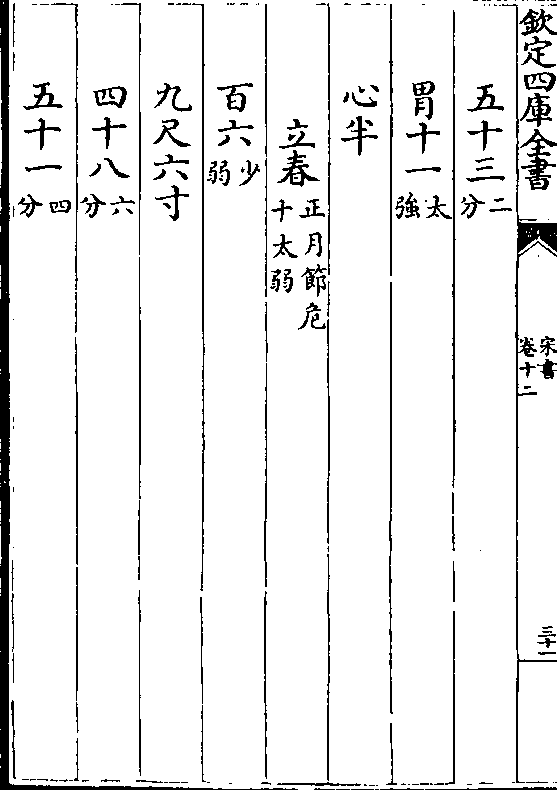 欽定四庫全書
宋書
卷十二
三十一
五十三二分
胃十一太強
心半
立春正月節危十太弱
百六少弱
九尺六寸
四十八六分
五十一四分